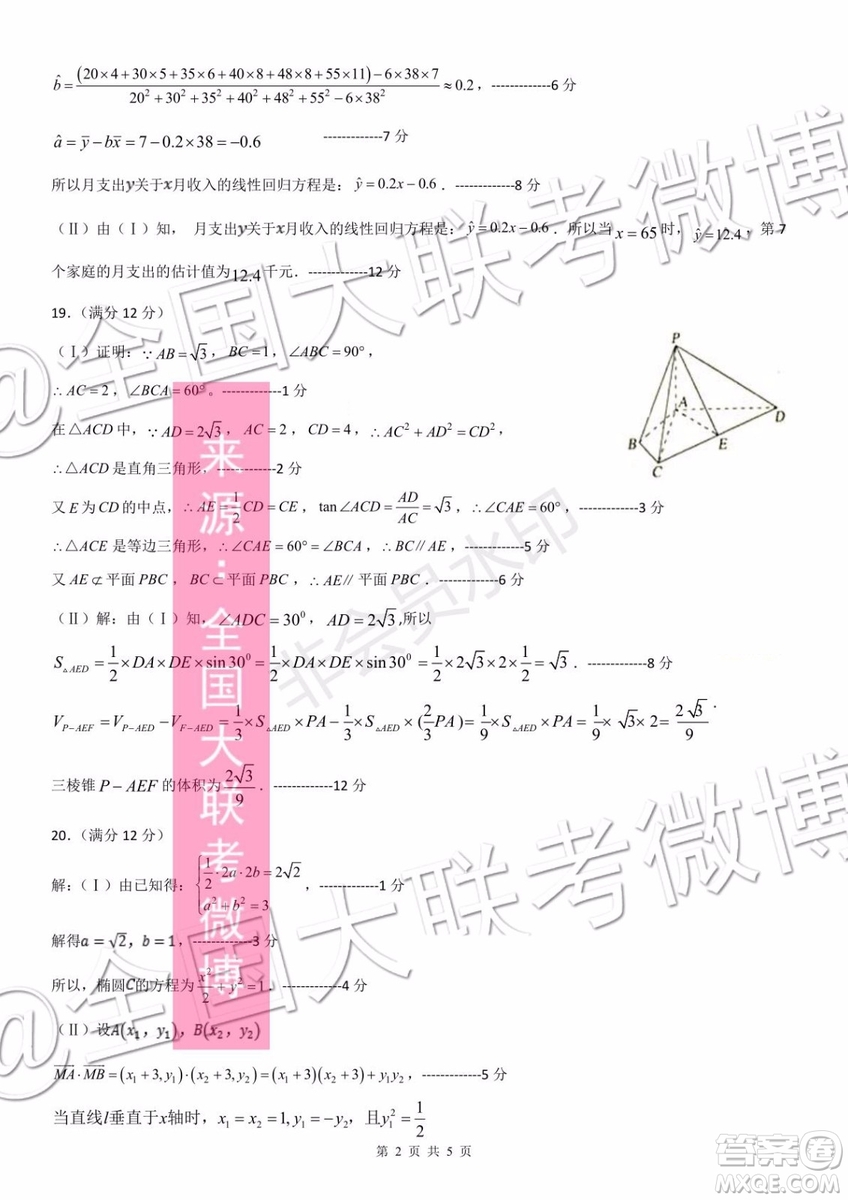 b̂ = ((20×4+30×5+35×6+40×8+48×8+55×11)−6×38×7)/(20²+30²+35²+40²+48²+55²−6×38²) ≈ 0.2，-------------6 分
â = ȳ − bx̄ = 7−0.2×38 = −0.6 -------------7 分
所以月支出y关于x月收入的线性回归方程是：ŷ=0.2x−0.6．-------------8 分
（Ⅱ）由（Ⅰ）知， 月支出y关于x月收入的线性回归方程是：ŷ=0.2x−0.6．所以当x=65时，ŷ=12.4，第 7
个家庭的月支出的估计值为12.4千元．-------------12 分
19．（满分 12 分）
（Ⅰ）证明：∵AB=√3，BC=1，∠ABC=90°，
∴AC=2，∠BCA=60°。-------------1 分
在△ACD 中，∵AD=2√3，AC=2，CD=4，∴AC²+AD²=CD²，
∴△ACD 是直角三角形，-------------2 分
又 E 为 CD 的中点，∴AE=1/2CD=CE，tan∠ACD=AD/AC=√3，∴∠CAE=60°，-------------3 分
∴△ACE 是等边三角形，∴∠CAE=60°=∠BCA，∴BC∥AE，-------------5 分
又 AE⊄平面 PBC，BC⊂平面 PBC，∴AE∥ 平面 PBC．-------------6 分
（Ⅱ）解：由（Ⅰ）知，∠ADC=30⁰，AD=2√3,所以
S△AED = 1/2×DA×DE×sin30⁰ = 1/2×DA×DE×sin30⁰ = 1/2×2√3×2×1/2 = √3．-------------8 分
V_{P−AEF} = V_{P−AED} − V_{F−AED} = 1/3×S△AED×PA − 1/3×S△AED×(2/3PA) = 1/9×S△AED×PA = 1/9×√3×2 = 2√3/9．
三棱锥 P−AEF 的体积为 2√3/9．-------------12 分
20．（满分 12 分）
解：（Ⅰ）由已知得：{1/2·2a·2b=2√2
a²+b²=3，-------------1 分
解得a=√2，b=1，-------------3 分
所以，椭圆C的方程为x²/2+y²=1．-------------4 分
（Ⅱ）设A(x₁，y₁)，B(x₂，y₂)
MA·MB=(x₁+3,y₁)·(x₂+3,y₂)=(x₁+3)(x₂+3)+y₁y₂，-------------5 分
当直线l垂直于x轴时，x₁=x₂=1,y₁=−y₂，且y₁²=1/2
P
A
B
C
D
E
第 2 页 共 5 页
来源：全国大联考微博
@全国大联考微博
@全国大联考微博
非会员水印
答案圈
MXQE.COM